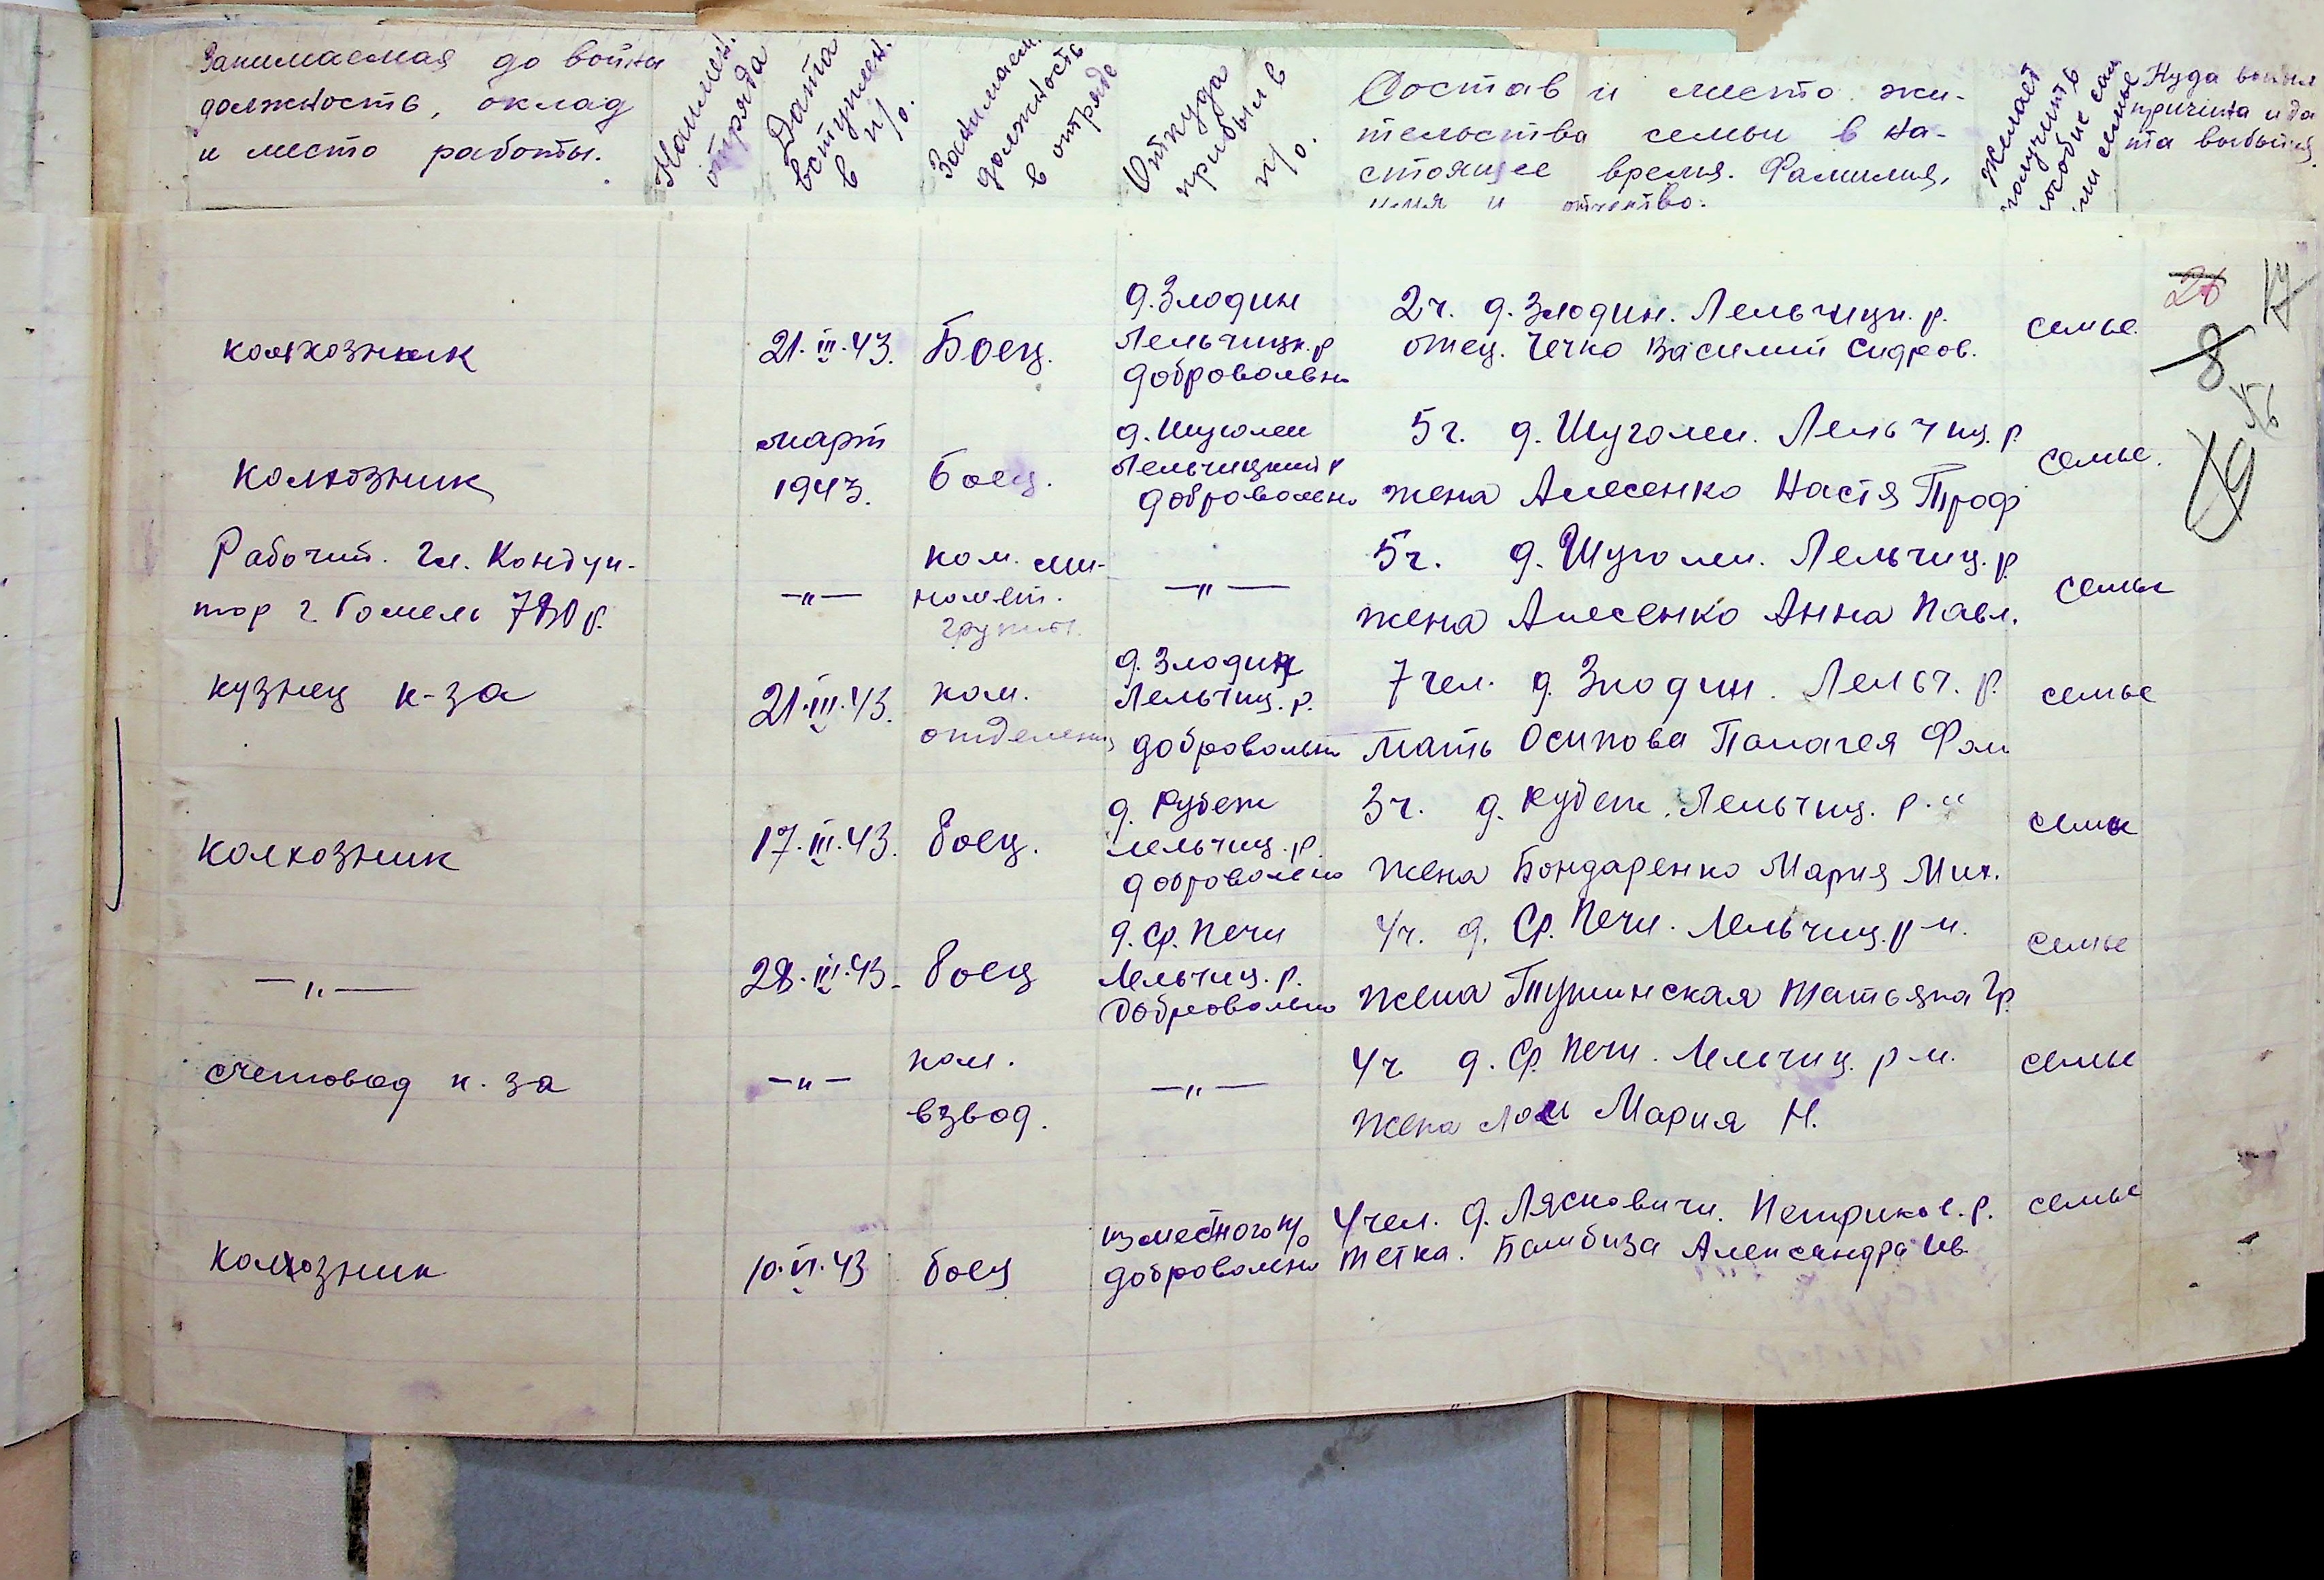 Занимаемая до войны
должность, оклад
и место работы.
Наимен.
отряда
Дата
вступлен.
в п/о.
Занимаем.
должность
в отряде
Откуда
прибыл в
п/о.
Состав и место жи-
тельства семьи в на-
стоящее время. Фамилия,
имя и отчество.
Желает
получить
пособие сам
или семье
Куда выбыл
причина и да
та выбытия.
26 17
8
56
колхозник
21.III.43.
Боец.
д. Злодин
Лельчицк. р
добровольно
2ч. д. Злодин. Лельчицк. р.
отец. Чечко Василий Сидров.
семье.
колхозник
март
1943.
Боец.
д. Шуголеи
Лельчицкий р
добровольно
5ч. д. Шуголеи. Лельчиц. р
жена Алесенко Настя Троф
семье.
Рабочий. Гл. Кондук-
тор г. Гомель
—„—
ком. ми-
номет.
группы.
—„—
5ч. д. Шуголеи. Лельчиц. р.
жена Алесенко Анна Павл.
семье
кузнец к-за
21.III.43.
ком.
отделения
д. Злодин
Лельчиц. р.
добровольно
7 чел. д. Злодин. Лельч. р.
мать Осипова Палагея Фом
семье
колхозник
17.III.43.
боец.
д. Рубеж
Лельчиц. р.
добровольно
3ч. д. Рубеж. Лельчиц. р.
жена Бондаренко Мария Мих.
семье
—„—
28.III.43.
боец
д. Ср. Печи
Лельчиц. р.
добровольно
4ч. д. Ср. Печи. Лельчиц. р-н.
жена Тушинская Татьяна Гр.
семье
счетовод к-за
—„—
ком.
взвод.
—„—
4ч д. Ср. Печи. Лельчиц. р-н.
жена Лось Мария Н.
семье
колхозник
10.VI.43
боец
из местного п/о
добровольно
4 чел. д. Лясковичи. Петриков. р.
тетка. Бамбиза Александра Ив.
семье